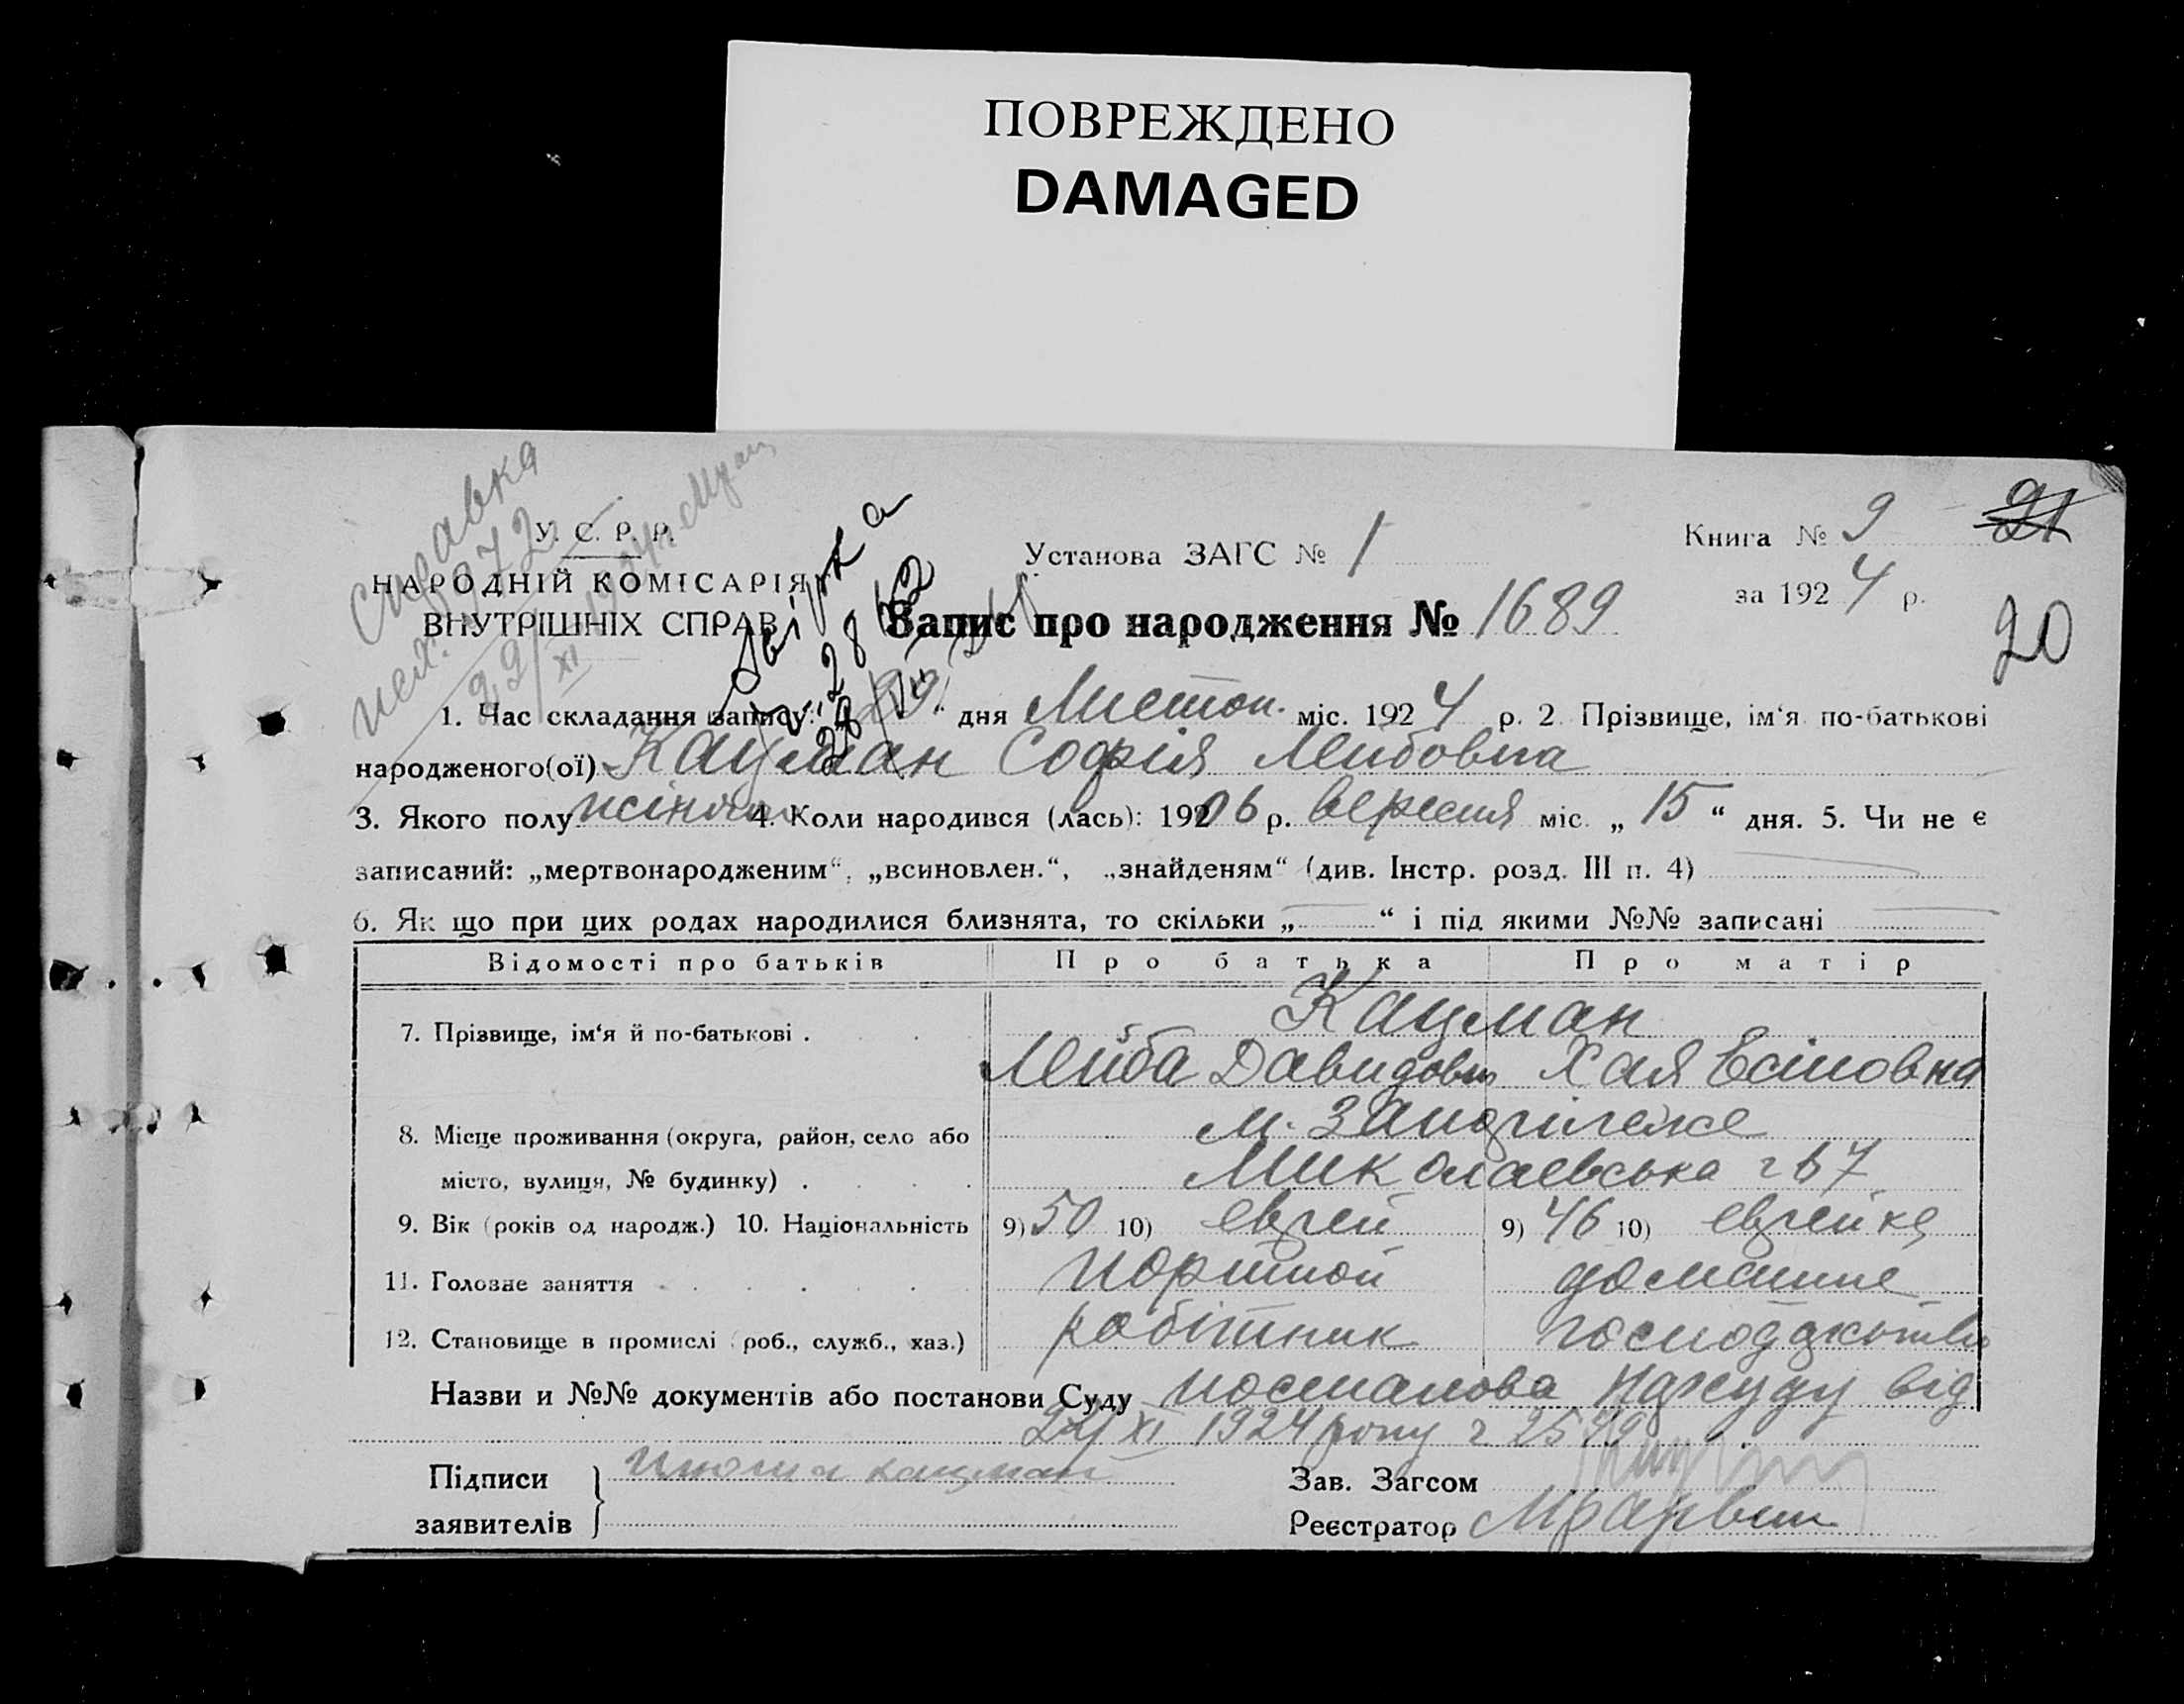 ПОВРЕЖДЕНО
DAMAGED
Справка
У. С. Р. Р.
НАРОДНІЙ КОМІСАРІЯ
ВНУТРІШНІХ СПРАВ
Установа ЗАГС № 1
Книга № 9
21
за 1924 р.
20
Запис про народження № 1689
1. Час складання запису: „29“ дня Листоп. міс. 1924 р. 2 Прізвище, ім‘я по-батькові
народженого(ої) Кацман Софія Лейбовна
3. Якого полу жіноч 4. Коли народився (лась): 19206 р. вересня міс. „15“ дня. 5. Чи не є
записаний: „мертвонародженим“, „всиновлен.“, „знайденям“ (див. Інстр. розд. III п. 4)
6. Як що при цих родах народилися близнята, то скільки „ “ і під якими №№ записані
Відомості про батьків Про батька Про матір
7. Прізвище, ім‘я й по-батькові . Кацман
Лейба Давидович Хая
8. Місце проживання (округа, район, село або м.
місто, вулиця, № будинку) . Миколаевська 67
9. Вік (років од народж.) 10. Національність 9) 50 10) еврей 9) 46 10) еврейка
11. Головне заняття портной домашне
12. Становище в промислі (роб., служб., хаз.) робітник
Назви и №№ документів або постанови Суду постанова Нарсуду від
XI 1924 року
Підписи кацман
заявителів
Зав. Загсом
Реєстратор